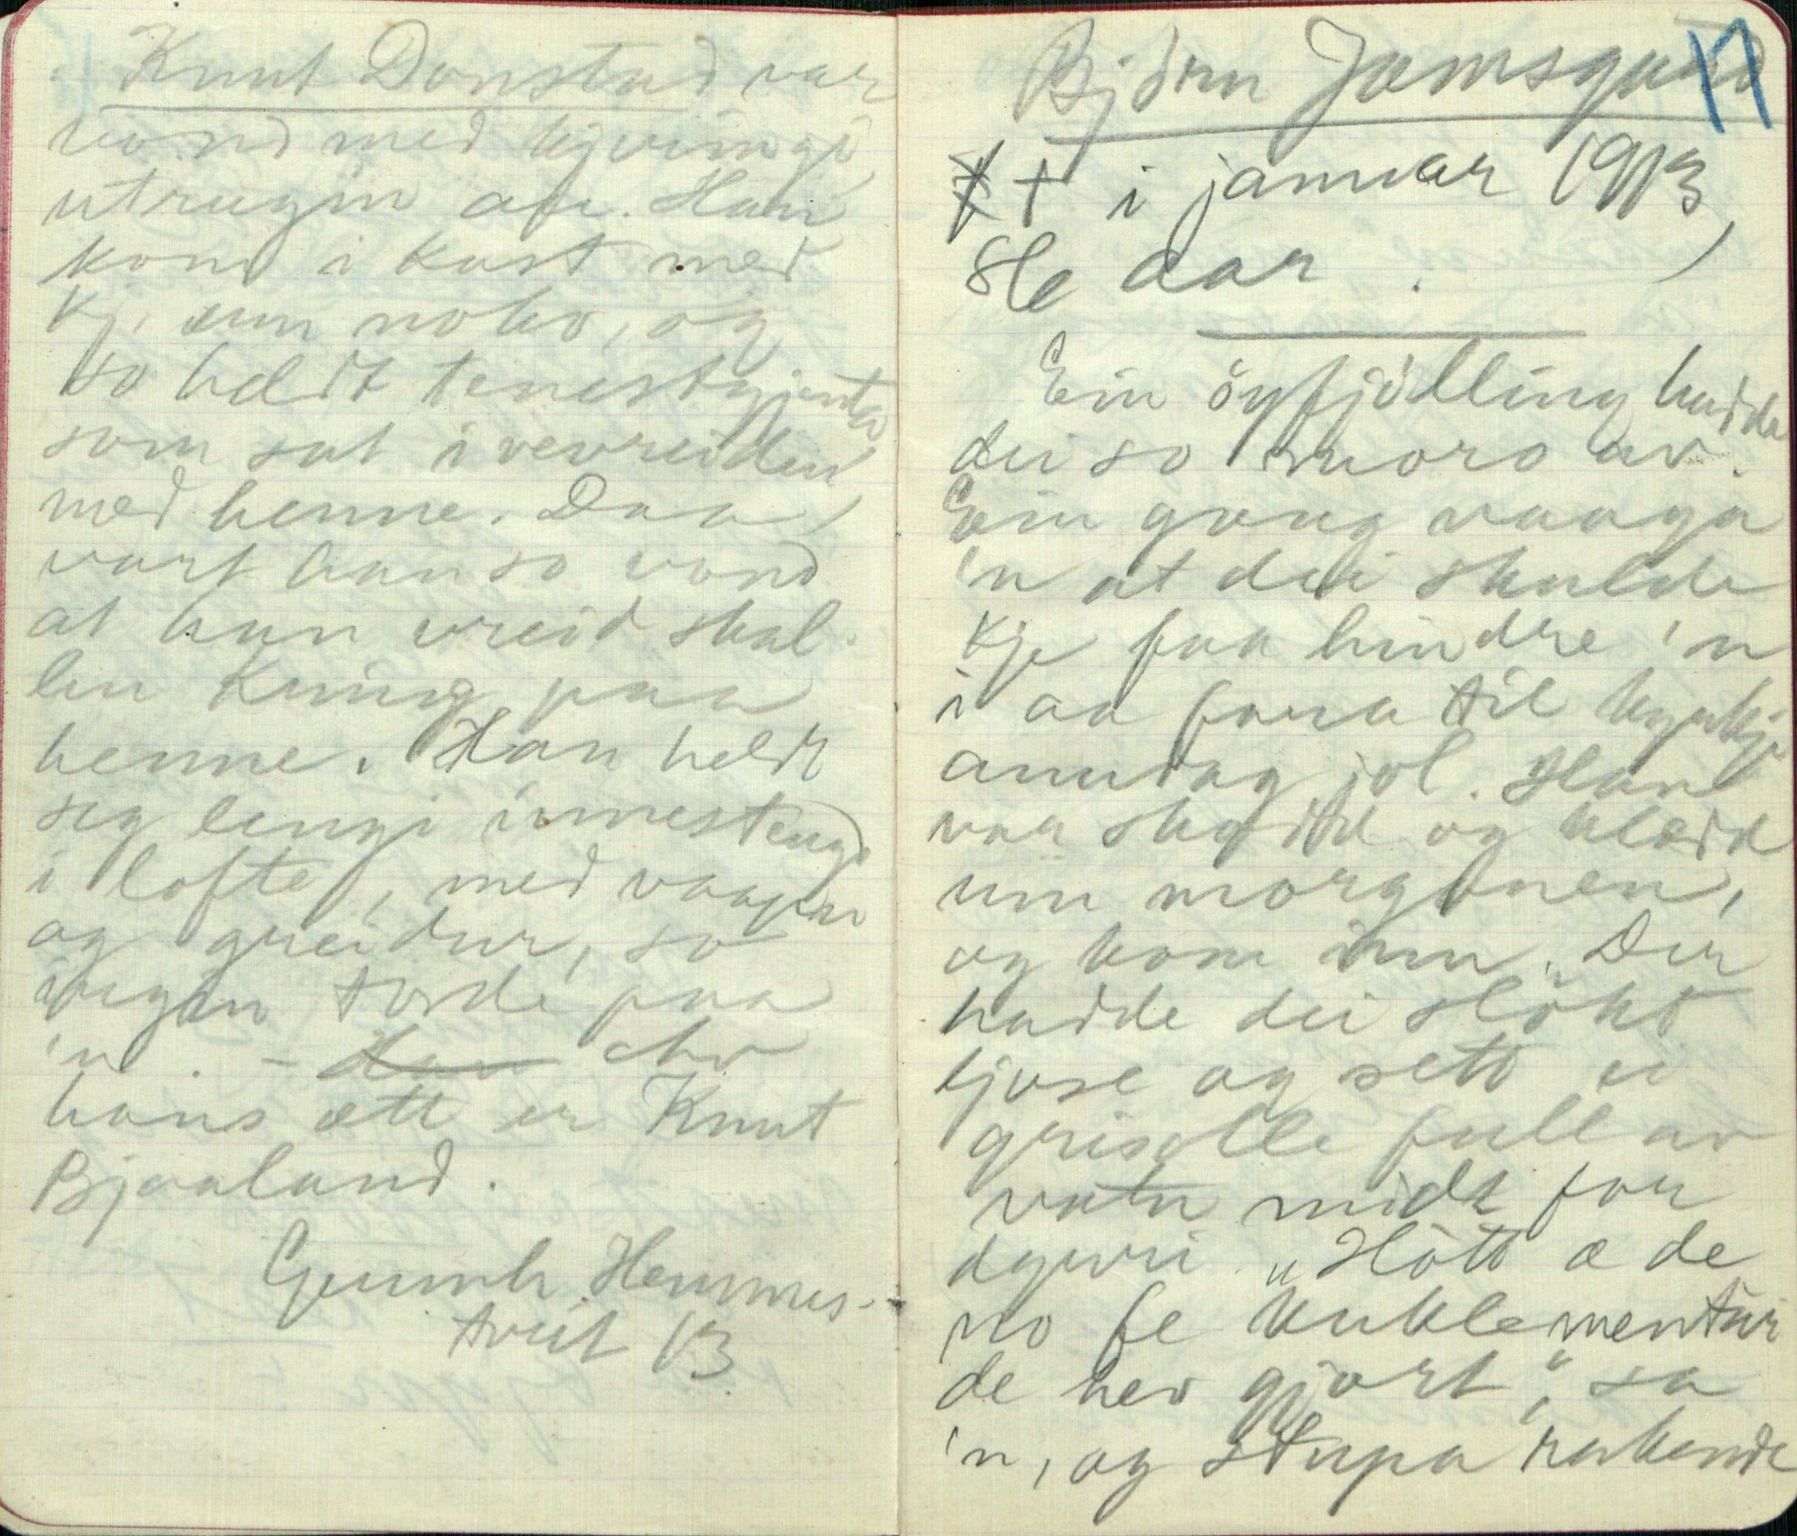 Knut Donstad var
vond med kjeringi
utrugin au. Han
kom i kast med
kj. um noko, og
so heldt tenestgjenta
som sat i vevreiden
med henne. Daa
vart han so vond
at han vreid skal-
len kring paa
henne. Han heldt
seg lengi innestengd
i loftet, med vaapen
og greidur, so
ingen torde paa
'n. – Han Av
hans ætt er Knut
Bjaaland.
Gunnh. Hemmes-
tveit 13
17
Björn Jamsgard
† i januar 1913,
80 aar.
Ein öyfjölling hadde
dei so moro av.
Ein gong vaaga
'n at dei skulde
kje faa hindre 'n
i aa fara til kyrkje
anndag jol. Han
var skodd og klædd
um morgonen,
og kom inn. Der
hadde dei slökt
ljose og sett ei
griselle full av
vatn midt for
dyrri. "Hött æ de
no fe kuklementur
de hev gjort," sa
'n, og stupa rakende